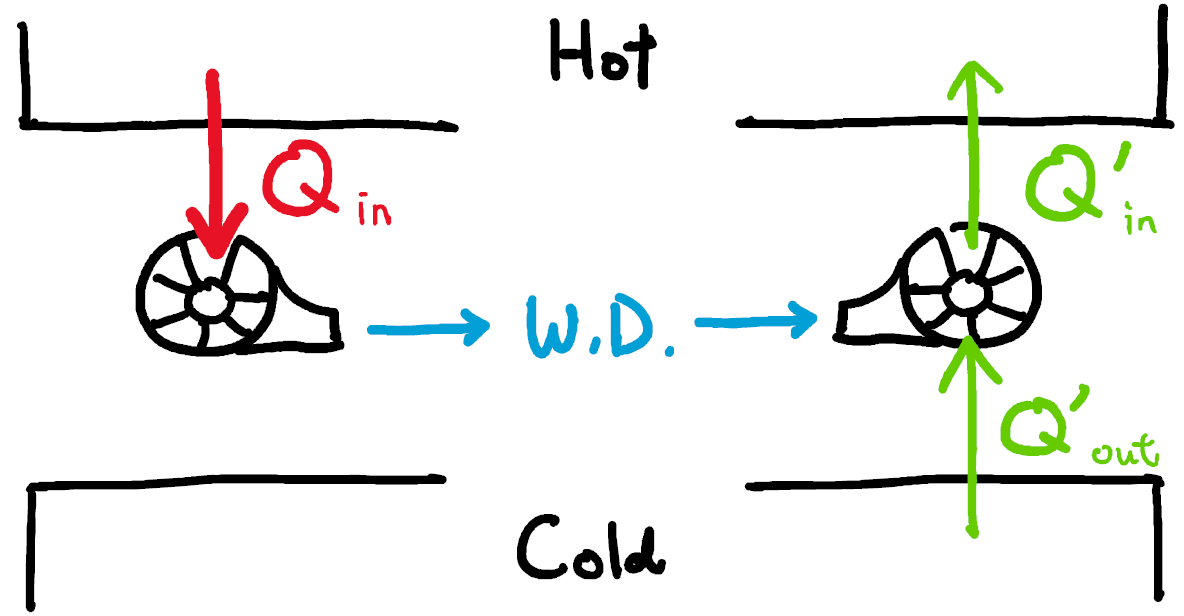 Hot
Q in
Q' in
W.D.
Q' out
Cold